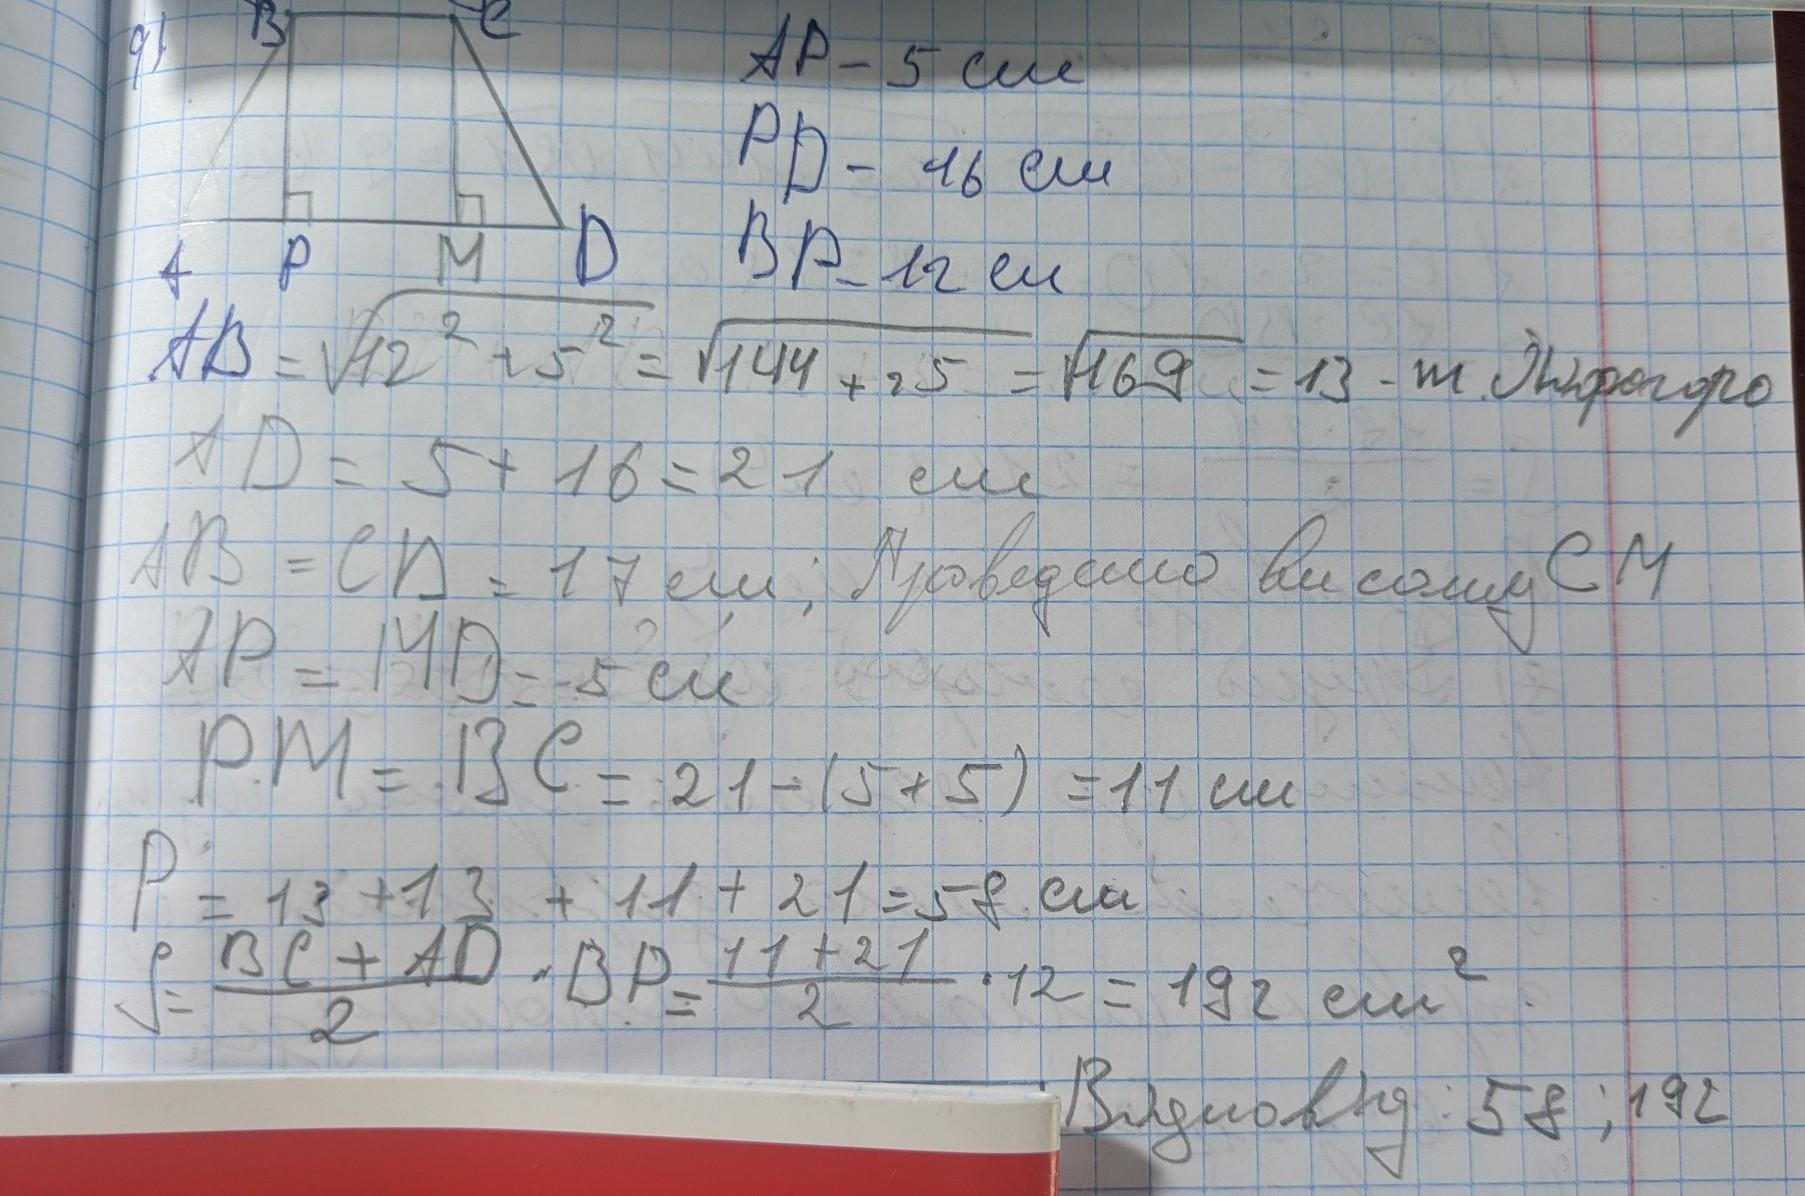 9)
B C
A P M D
AP - 5 см
PD - 16 см
BP - 12 см
AB = √12² + 5² = √144 + 25 = √169 = 13 - т. Піфагора
AD = 5 + 16 = 21 см
AB = CD = 17 см; Проведемо висоту CM
AP = MD = 5 см
PM = BC = 21 - (5 + 5) = 11 см
P = 13 + 13 + 11 + 21 = 58 см
S = BC + AD / 2 · BP = 11 + 21 / 2 · 12 = 192 см²
Відповідь: 58; 192